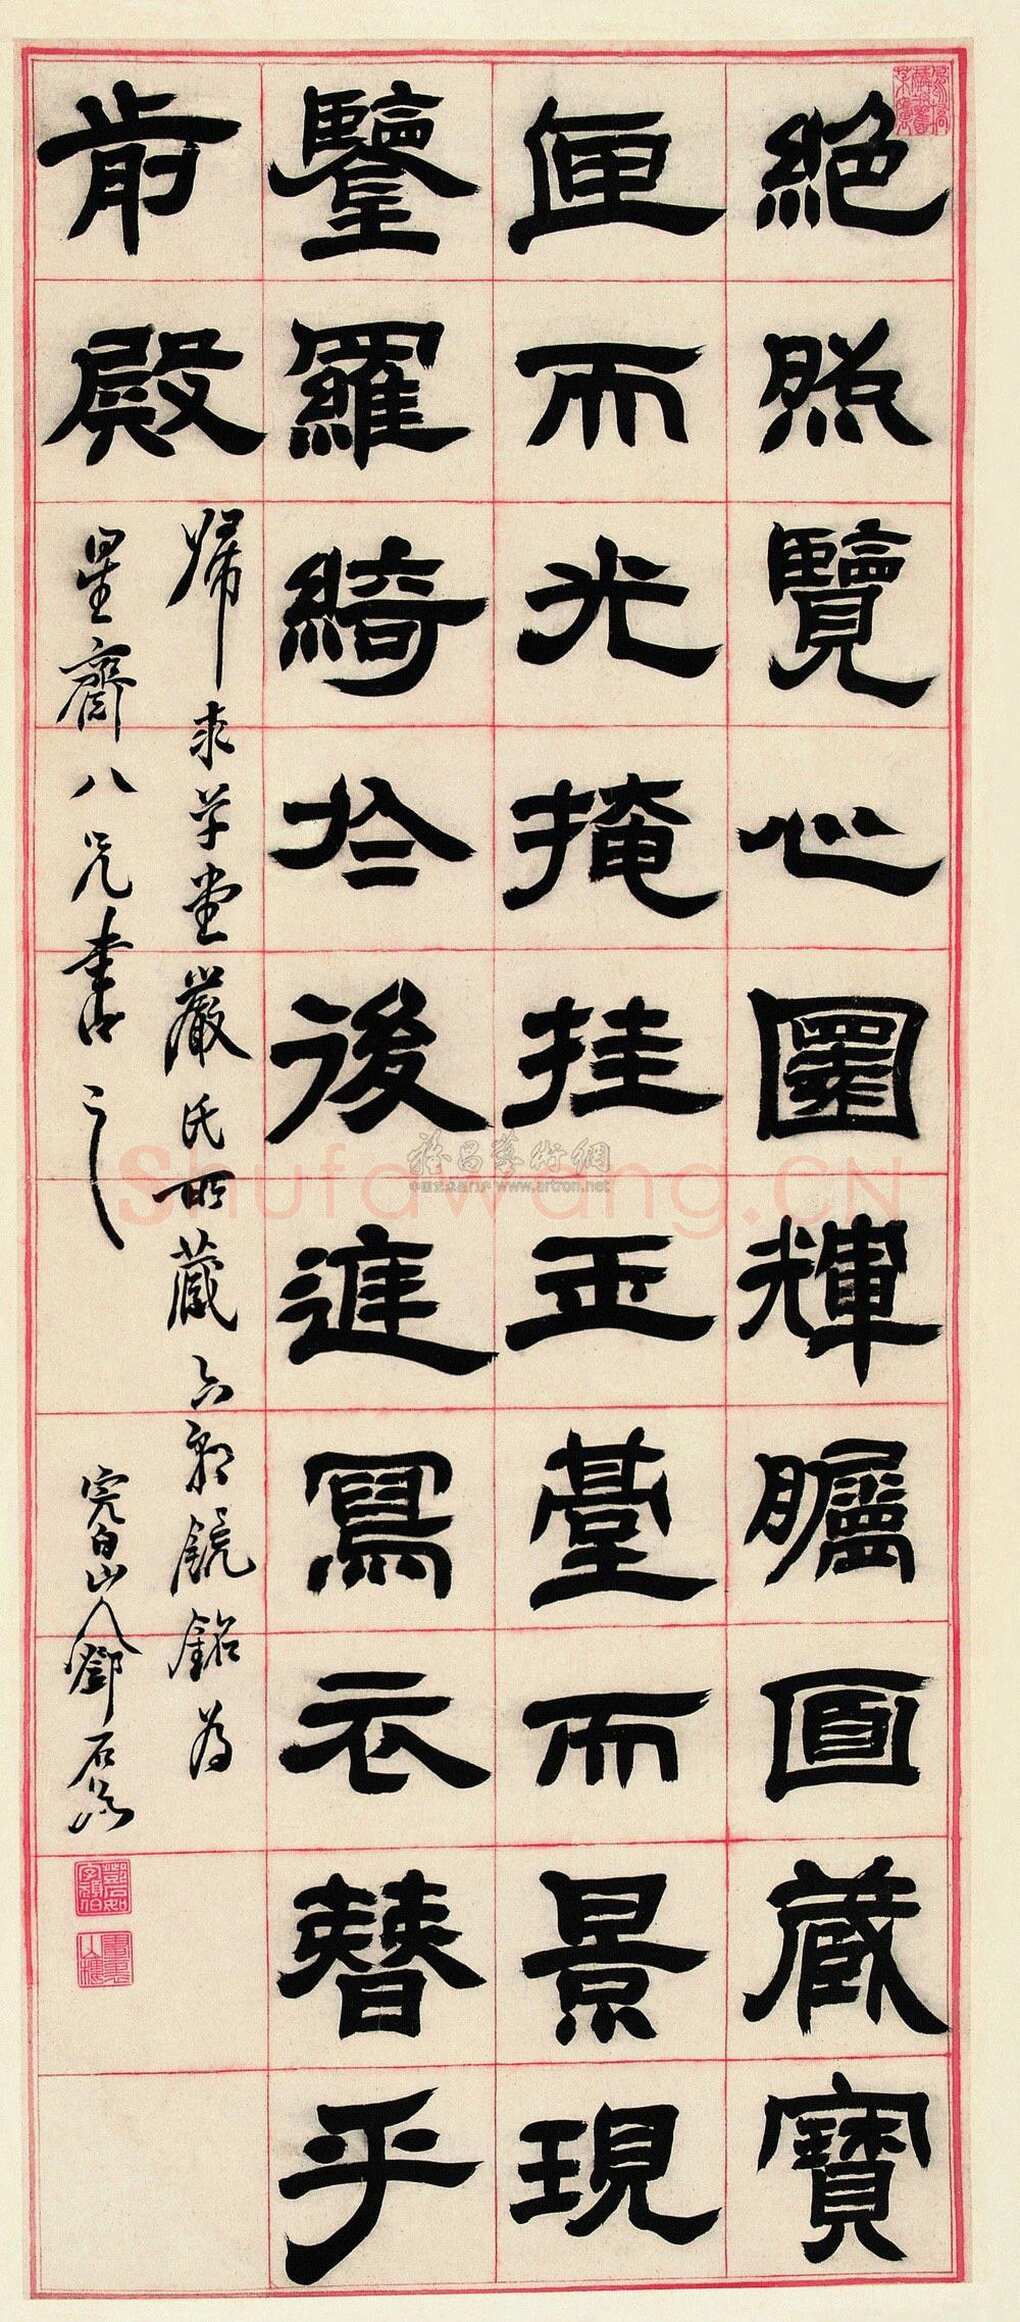 絕照覽心圞輝矚面藏寶
匣而光掩挂玉臺而景現
鑒羅綺於後進寫衣簪乎
前殿
歸求草堂嚴氏所藏六朝鏡銘為
星齋八兄書之
完白山人鄧石如
雅昌藝術網
www.artron.net
Shufawang.CN